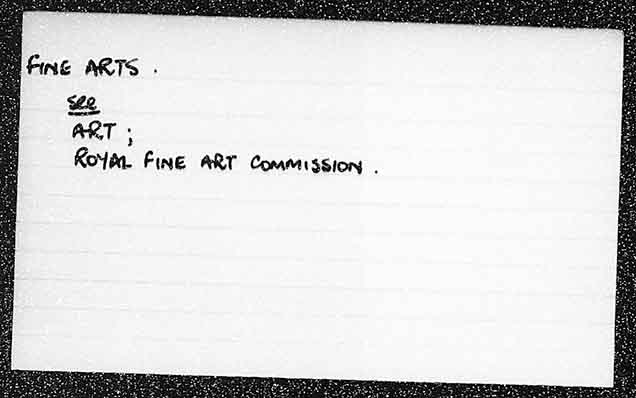 FINE ARTS .
see
ART ;
ROYAL FINE ART COMMISSION .